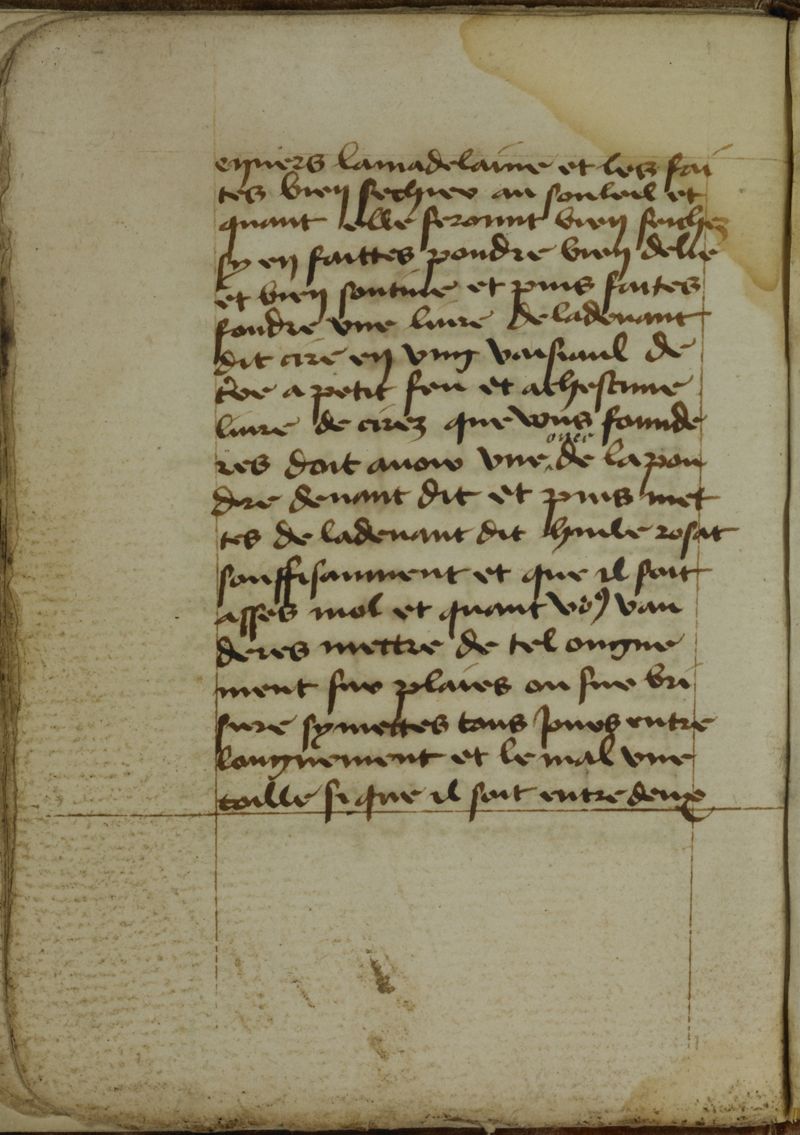 enners lamadelaine et les fai
tes bien sechier au souleil et
quant elle seronnt bien seichez
sy en faittes pouldre bien delie
et bien soutille et puis faites
fondre une livre deladevant
dit cire en ung vaisiaul de
t're a petit feu et achescune
livre de cirez que vous founde
res doit avoir une once de la pou
dre devant dit et puis met
tes de ladevant dit huile rosat
souffisanment et que il soit
asses mol et quant vo9 vau
deres mettre de tel ongne
ment sur plaies ou sur bri
sure symettes tous jours entre
longnement et le mal une
toille si que il soit entre deux